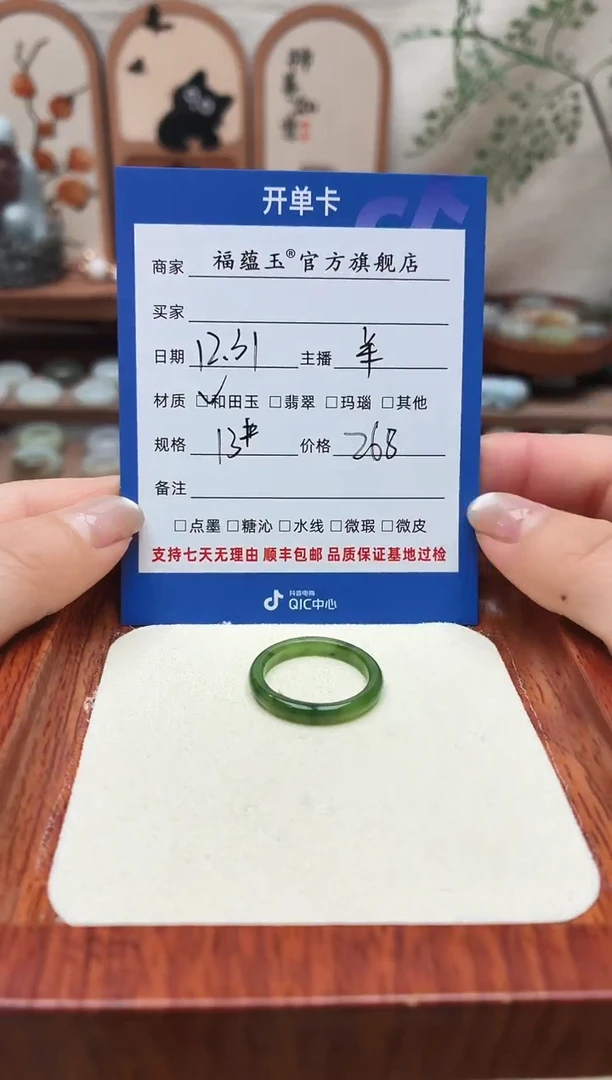 开单卡
商家 福蕴玉®官方旗舰店
买家
日期 12.31 主播 羊
材质 ☑和田玉 □翡翠 □玛瑙 □其他
规格 13# 价格 268
备注
□点墨 □糖沁 □水线 □微瑕 □微皮
支持七天无理由 顺丰包邮 品质保证基地过检
抖音电商
QIC中心